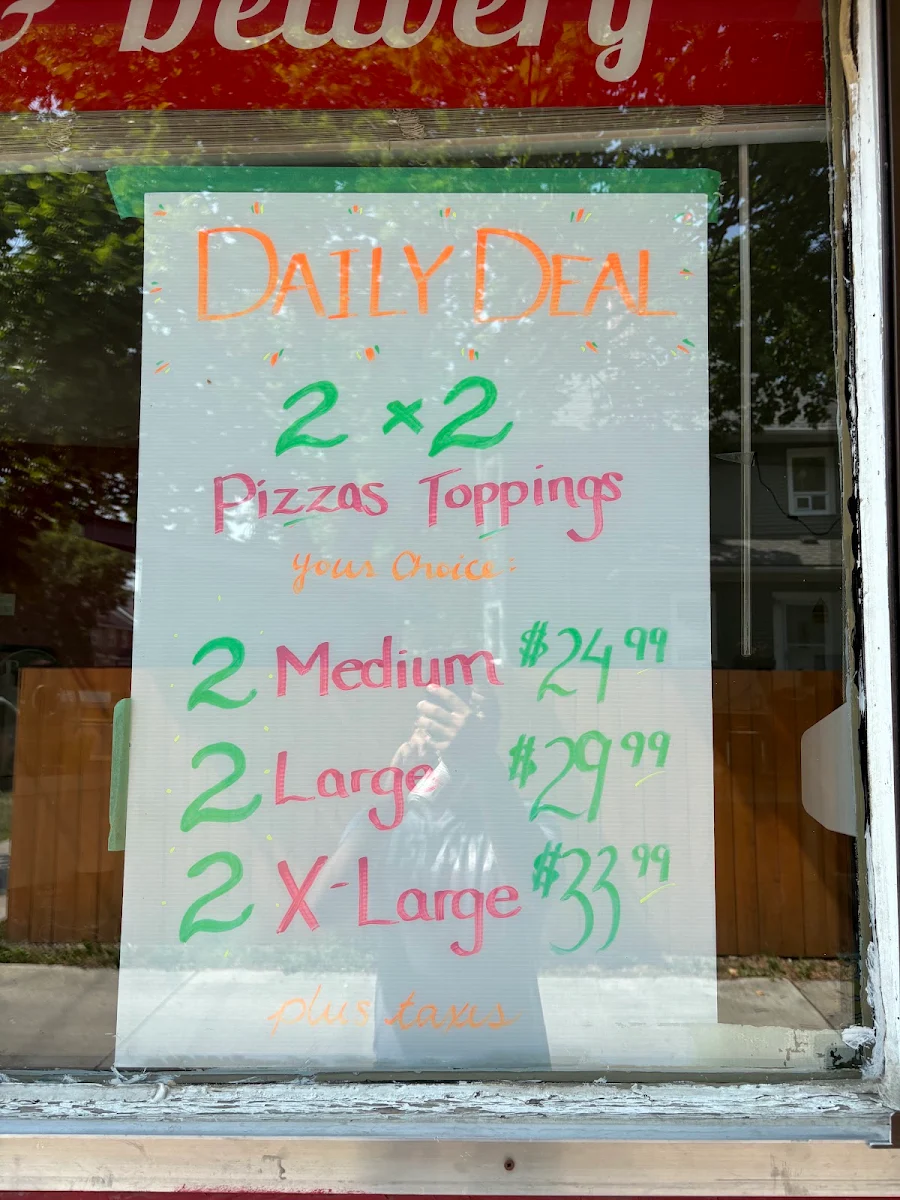 & Delivery
DAILY DEAL
2 × 2
Pizzas Toppings
your Choice:
2 Medium $24.99
2 Large $29.99
2 X-Large $33.99
plus taxes